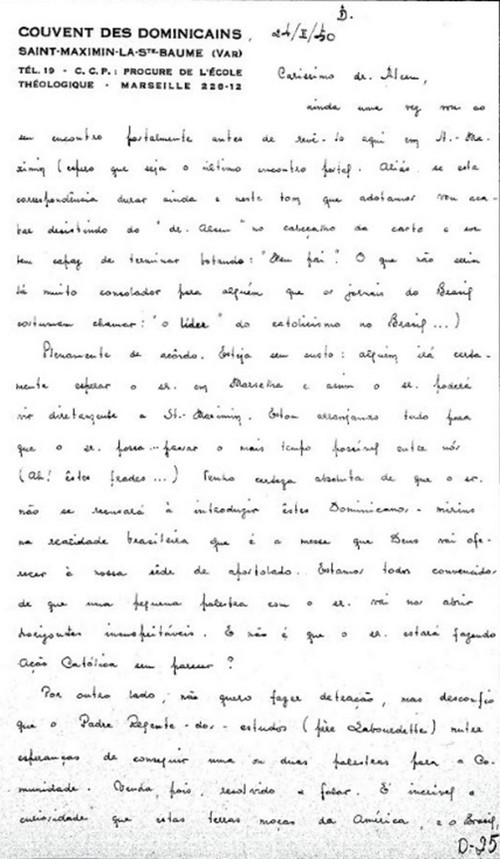 D.
COUVENT DES DOMINICAINS, 24/II/50
SAINT-MAXIMIN-LA-STE-BAUME (VAR)
TÉL. 19 - C. C. P. : PROCURE DE L'ÉCOLE
THÉOLOGIQUE - MARSEILLE 226-12
Caríssimo dr. Alceu,
ainda uma vez vou ao
seu encontro postalmente antes de revê-lo aqui em St.-Ma-
ximin (espero que seja o último encontro postal. Aliás se esta
correspondência durar ainda e neste tom que adotamos vou aca-
bar desistindo do "dr. Alceu" no cabeçalho da carta e sou
bem capaz de terminar botando: "Meu pai"! O que não seria
lá muito consolador para alguém que os jornais do Brasil
costumam chamar: "o líder" do catolicismo no Brasil...)
Plenamente de acôrdo. Esteja sem susto: alguém irá certa-
mente esperar o sr. em Marselha e assim o sr. poderá
vir diretamente a St.-Maximin. Estou arranjando tudo para
que o sr. possa... passar o mais tempo possível entre nós
(Ah! êstes frades...) Tenho certeza absoluta de que o sr.
não se recusará à introduzir êstes Dominicanos-mirins
na realidade brasileira que é a messe que Deus vai ofe-
recer à nossa sêde de apostolado. Estamos todos convencidos
de que uma pequena palestra com o sr. vai nos abrir
horizontes insuspeitáveis. E não é que o sr. estará fazendo
Ação Católica sem parecer?
Por outro lado, não quero fazer detração, mas desconfio
que o Padre Regente-dos-estudos (père Labourdette) nutre
esperanças de conseguir uma ou duas palestras para a Co-
munidade. Venha, pois, resolvido a falar. É incrível a
curiosidade que estas terras moças da América, e o Brasil,
D-25